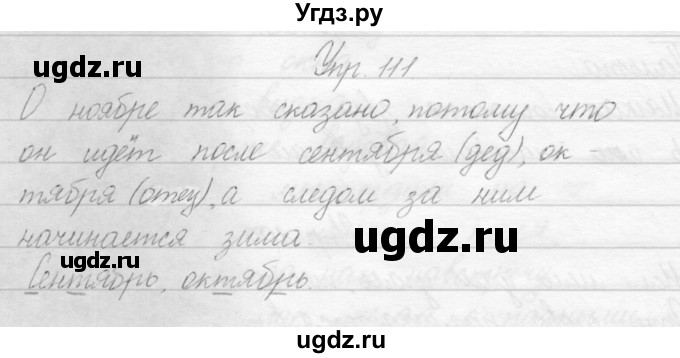 Угдз.ру
ugdz.ru
ugdz.ru
Упр. 111
О ноябре так сказано, потому что
он идёт после сентября (дед), ок-
тября (отец), а следом за ним
начинается зима.
ugdz.ru
ugdz.ru
Сентябрь, октябрь.
ugdz.ru